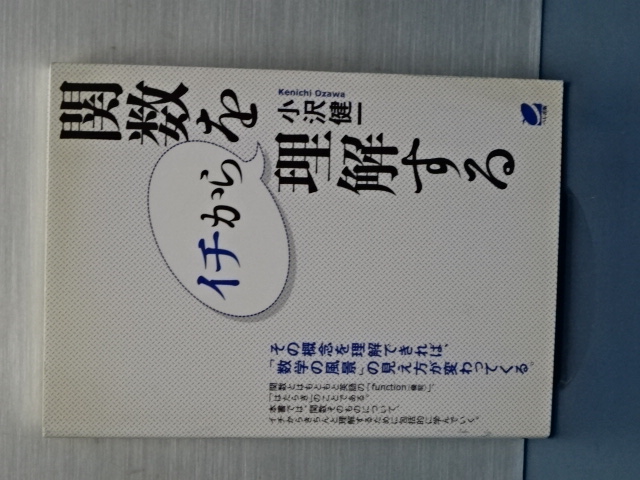 関数を
イチから
理解する
Kenichi Ozawa
小沢健一
その概念を理解できれば、
「数学の風景」の見え方が変わってくる。
関数とはもともと英語の「function（機能）」、
「はたらき」のことである。
本書では、関数そのものについて、
イチからきちんと理解するために包括的に学んでいく。